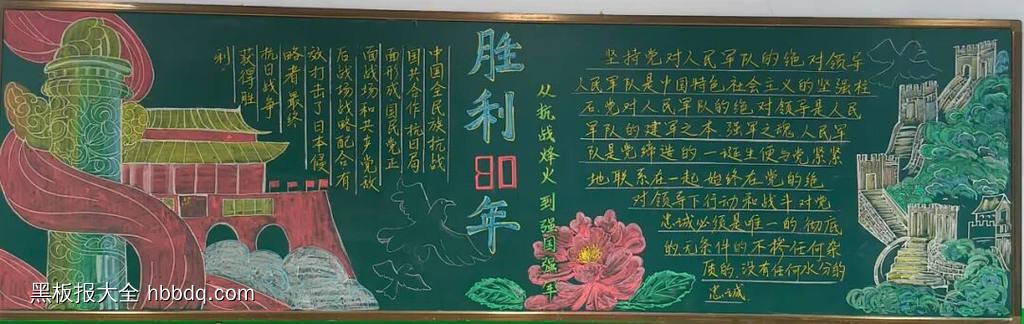 中国全民族抗战
国共合作 抗日局
面形成 国民党正
面战场和共产党敌
后战场战略配合有
效打击了日本侵
略者 最终
抗日战争
获得胜
利
胜利80年
从抗战烽火 到强国强军
坚持党对人民军队的绝对领导
人民军队是中国特色社会主义的坚强柱
石 党对人民军队的绝对领导是人民
军队的建军之本 强军之魂 人民军
队是党缔造的 一诞生便与党紧紧
地联系在一起 始终在党的绝
对领导下行动和战斗 对党
忠诚必须是唯一的 彻底
的 无条件的 不掺任何杂
质的 没有任何水分的
忠诚
黑板报大全 hbbdq.com